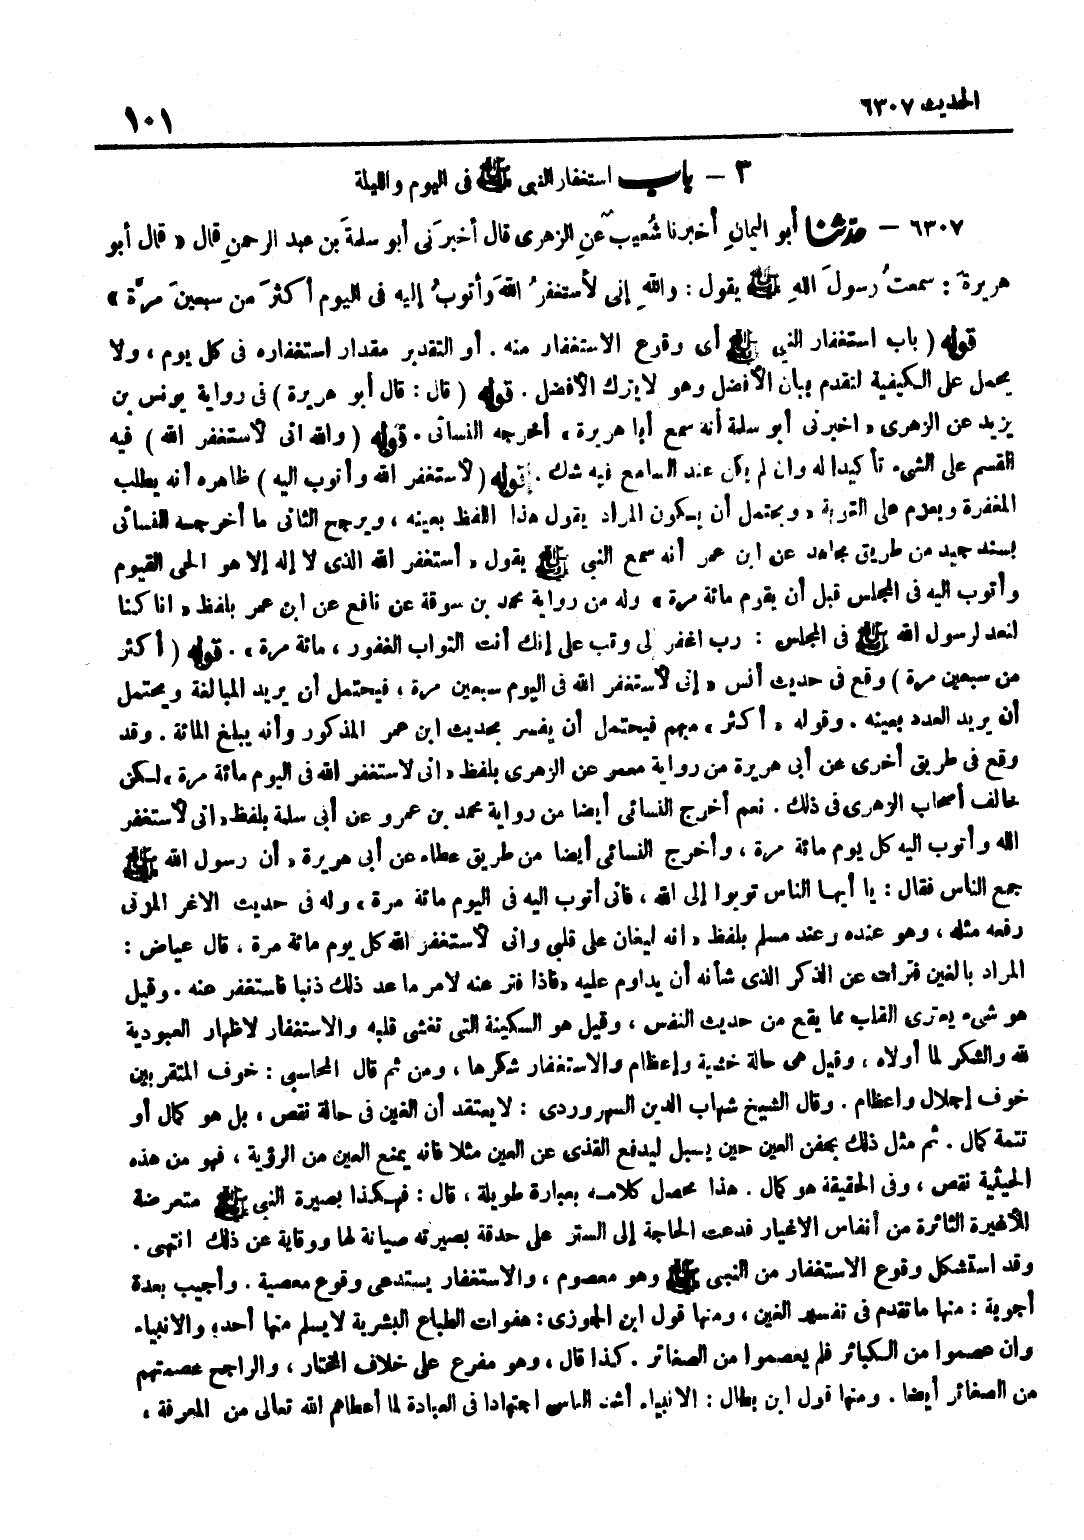 الحديث ٦٣٠٧
١٠١
٣ – باب استغفار النبى ﷺ فى اليوم والليلة
٦٣٠٧ – حدثنا أبو اليمانِ أخبرنا شُعيبٌ عنِ الزهرى قال أخبرَنى أبو سلمةَ بن عبد الرحمنِ قال « قال أبو
هريرةَ : سمعتُ رسولَ اللهِ ﷺ يقول : واللهِ إنى لأستغفرُ اللهَ وأتوبُ إليه فى اليوم أكثرَ من سبعينَ مرَّة »
قوله ( باب استغفار النبي ﷺ أى وقوع الاستغفار منه . أو التقدير مقدار استغفاره فى كل يوم ، ولا
يحمل على الكيفية لتقدم بيان الأفضل وهو لا يترك الأفضل . قوله ( قال : قال أبو هريرة ) فى رواية يونس بن
يزيد عن الزهرى « اخبرنى أبو سلمة أنه سمع أبا هريرة » أخرجه النسائى . قوله ( والله انى لأستغفر الله ) فيه
القسم على الشىء تأكيدا له وان لم يكن عند السامع فيه شك . قوله ( لأستغفر الله وأتوب اليه ) ظاهره أنه يطلب
المغفرة ويعزم على التوبة ، ويحتمل أن يكون المراد يقول هذا اللفظ بعينه ، ويرجح الثانى ما أخرجه النسائى
بسند جيد من طريق مجاهد عن ابن عمر أنه سمع النبي ﷺ يقول « أستغفر الله الذى لا إله إلا هو الحى القيوم
وأتوب اليه فى المجلس قبل أن يقوم مائة مرة » وله من رواية محمد بن سوقة عن نافع عن ابن عمر بلفظ « انا كنا
لنعد لرسول الله ﷺ فى المجلس : رب اغفر لى وتب على إنك أنت التواب الغفور ، مائة مرة » . قوله ( أكثر
من سبعين مرة ) وقع فى حديث أنس « إنى لأستغفر الله فى اليوم سبعين مرة ، فيحتمل أن يريد المبالغة ويحتمل
أن يريد العدد بعينه . وقوله « أكثر » مبهم فيحتمل أن يفسر بحديث ابن عمر المذكور وأنه يبلغ المائة . وقد
وقع فى طريق أخرى عن أبى هريرة من رواية معمر عن الزهرى بلفظ « انى لاستغفر الله فى اليوم مائة مرة » لكن
خالف أصحاب الزهرى فى ذلك . نعم أخرج النسائى أيضا من رواية محمد بن عمرو عن أبى سلمة بلفظ « انى لأستغفر
الله وأتوب اليه كل يوم مائة مرة ، وأخرج النسائى أيضا من طريق عطاء عن أبى هريرة « أن رسول الله ﷺ
جمع الناس فقال : يا أيها الناس توبوا إلى الله ، فانى أتوب اليه فى اليوم مائة مرة » وله فى حديث الاغر المزنى
رفعه مثله ، وهو عنده وعند مسلم بلفظ « انه ليغان على قلبى وانى لأستغفر الله كل يوم مائة مرة ، قال عياض :
المراد بالغين فترات عن الذكر الذى شأنه أن يداوم عليه ، فاذا فتر عنه لامر ما عد ذلك ذنبا فاستغفر عنه . وقيل
هو شىء يعترى القلب مما يقع من حديث النفس ، وقيل هو السكينة التى تغشى قلبه والاستغفار لاظهار العبودية
لله والشكر لما أولاه ، وقيل هى حالة خشية وإعظام والاستغفار شكرها ، ومن ثم قال المحاسبى : خوف المتقربين
خوف إجلال واعظام . وقال الشيخ شهاب الدين السهروردى : لا يعتقد أن الغين فى حالة نقص ، بل هو كمال أو
تتمة كمال . ثم مثل ذلك بجفن العين حين يسبل ليدفع القذى عن العين مثلا فانه يمنع العين من الرؤية ، فهو من هذه
الحيثية نقص ، وفى الحقيقة هو كمال . هذا محصل كلامه بعبارة طويلة ، قال : فهكذا بصيرة النبي ﷺ متعرضة
للأغيرة الثائرة من أنفاس الاغيار فدعت الحاجة إلى الستر على حدقة بصيرته صيانة لها ووقاية عن ذلك انتهى .
وقد استشكل وقوع الاستغفار من النبى ﷺ وهو معصوم ، والاستغفار يستدعى وقوع معصية . وأجيب بعدة
أجوبة : منها ما تقدم فى تفسير الغين ، ومنها قول ابن الجوزى : هفوات الطباع البشرية لا يسلم منها أحد ، والانبياء
وان عصموا من الكبائر فلم يعصموا من الصغائر . كذا قال ، وهو مفرع على خلاف المختار ، والراجح عصمتهم
من الصغائر أيضا . ومنها قول ابن بطال : الانبياء أشد الناس اجتهادا فى العبادة لما أعطاهم الله تعالى من المعرفة ،